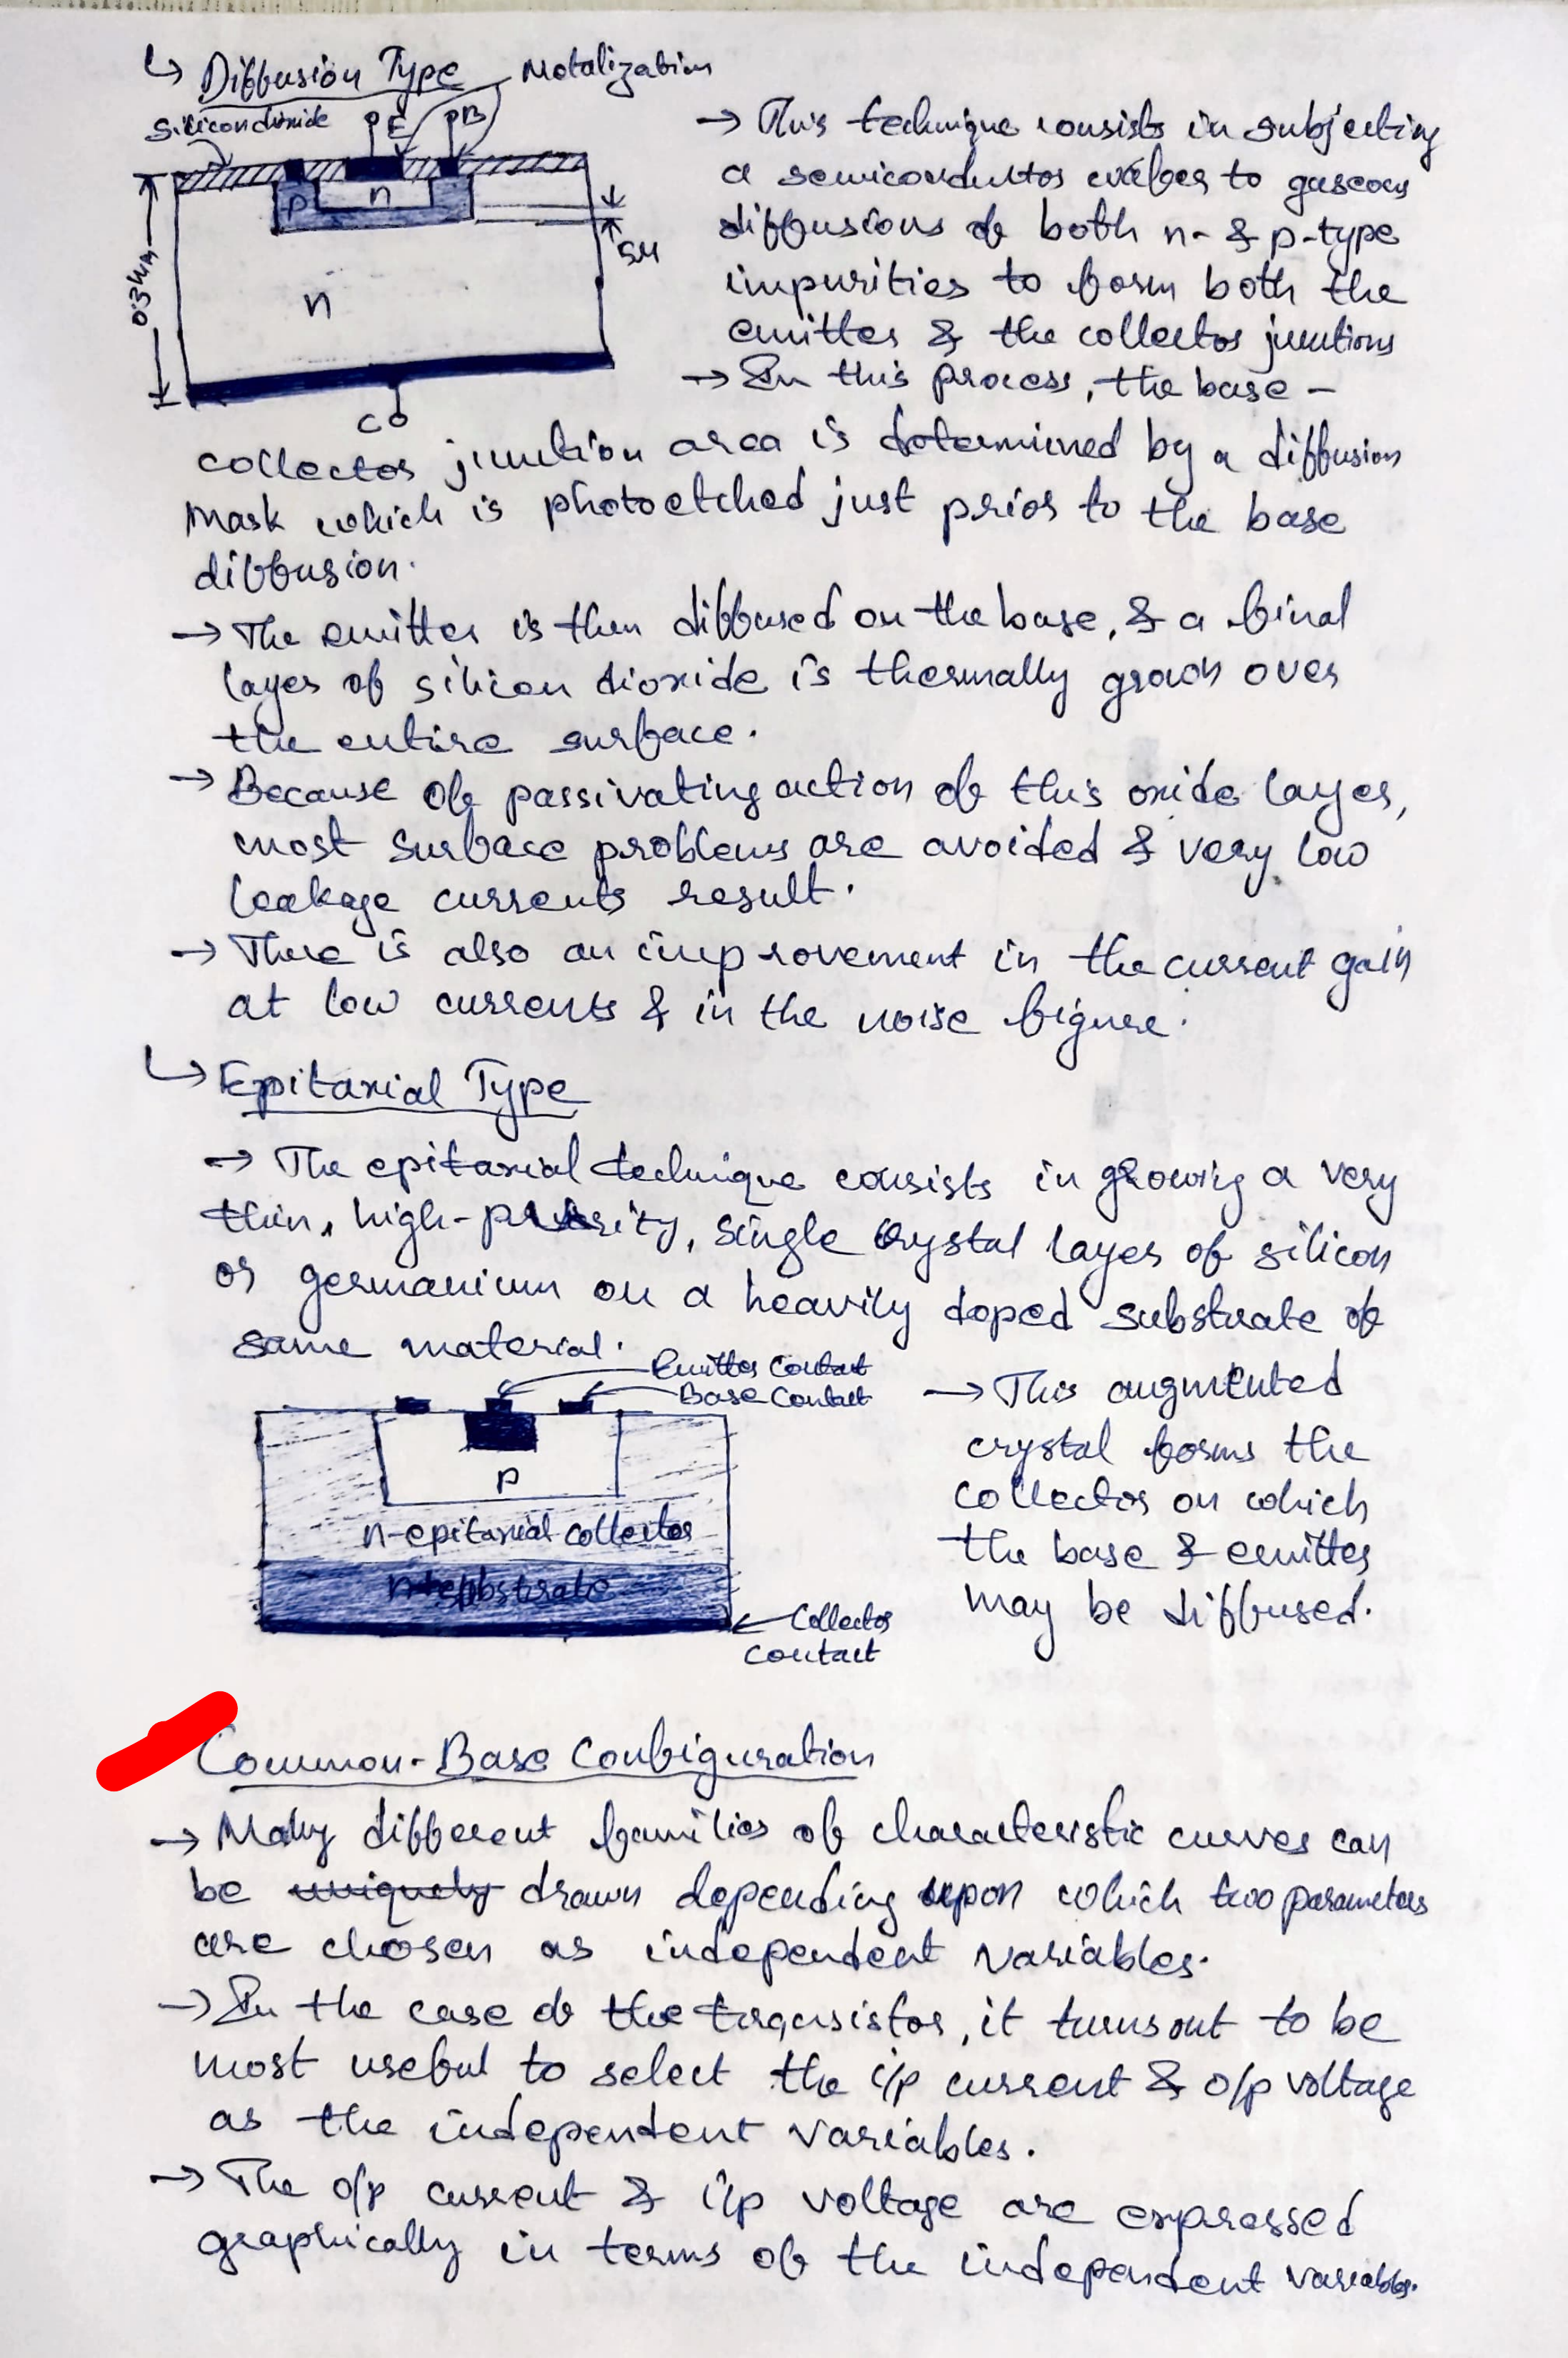 ↳ Diffusion Type
Metalization
Silicondioxide
E
B
p
n
5μ
0.3mm
n
C
→ This technique consists in subjecting
a semiconductor wafer to gaseous
diffusions of both n- & p-type
impurities to form both the
emitter & the collector junctions
→ In this process, the base -
collector junction area is determined by a diffusion
mask which is photoetched just prior to the base
diffusion.
→ The emitter is then diffused on the base, & a final
layer of silicon dioxide is thermally grown over
the entire surface.
→ Because of passivating action of this oxide layer,
most surface problems are avoided & very low
leakage currents result.
→ There is also an improvement in the current gain
at low currents & in the noise figure.
↳ Epitaxial Type
→ The epitaxial technique consists in growing a very
thin, high-purity, single crystal layer of silicon
or germanium on a heavily doped substrate of
same material.
Emitter Contact
Base Contact
p
n-epitaxial collector
n+substrate
Collector
Contact
→ This augmented
crystal forms the
collector on which
the base & emitter
may be diffused.
Common-Base Configuration
→ Many different families of characteristic curves can
be uniquely drawn depending upon which two parameters
are chosen as independent variables.
→ In the case of the transistor, it turns out to be
most useful to select the i/p current & o/p voltage
as the independent variables.
→ The o/p current & i/p voltage are expressed
graphically in terms of the independent variables.